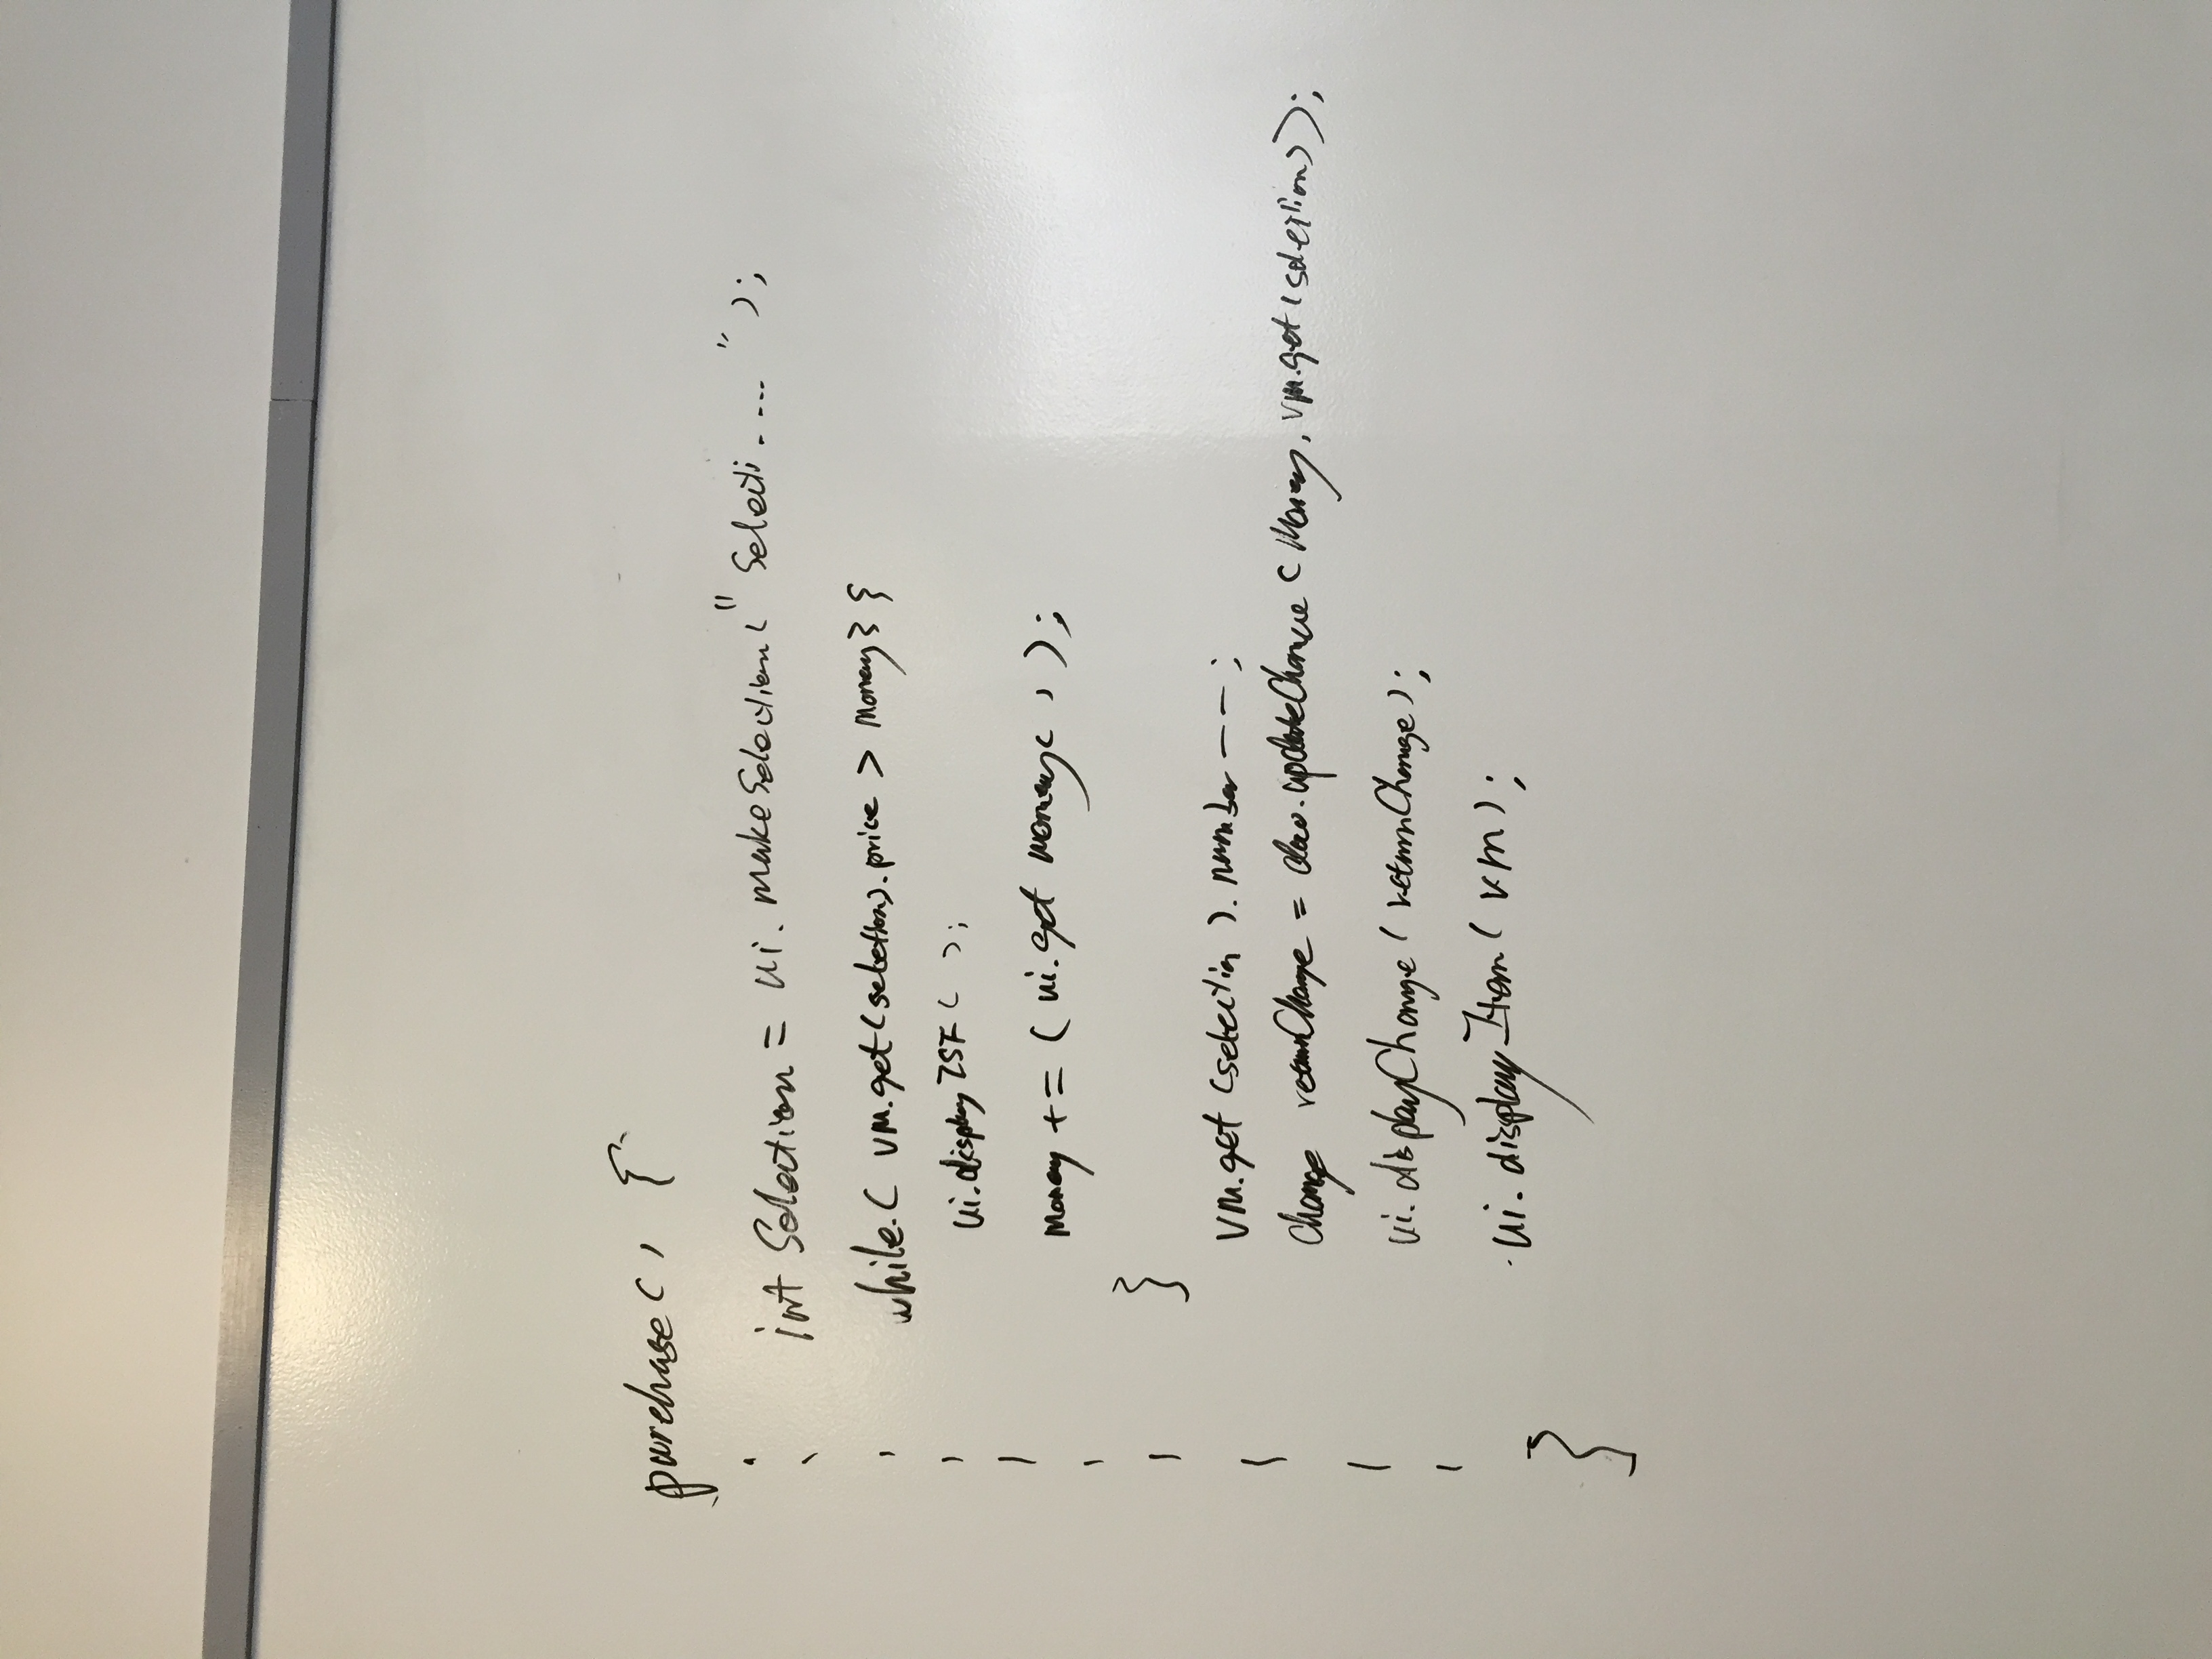 purchase() {
int Selection = ui.makeSelection("Selecti.....");
while.( vm.get(selection).price > money} {
ui.displayISF( );
money += (ui.get money());
}
vm.get(selectin).number--;
change returnChange = dao.updateChange(Money, vm.get(selection));
ui.displayChange(returnChange);
ui.displayItem(vm);
}